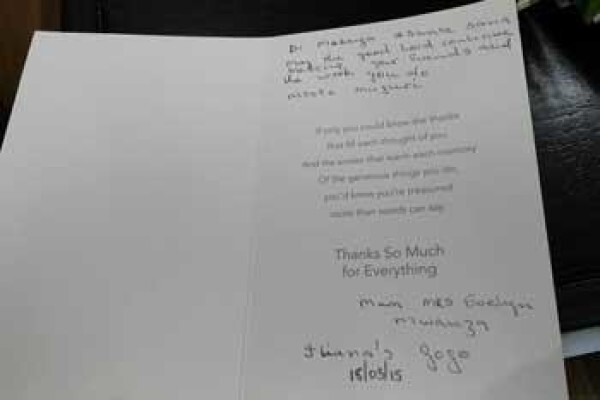 Dr Makunga Asante sana
may the good Lord continue
blessing your friends and
the work you do
If only you could know the thanks
that fill each thought of you,
And the smiles that warm each memory
Of the generous things you do,
you'd know you're treasured
more than words can say.
Thanks So Much
for Everything
Mrs Evelyn
Mwanza
Iliana's gogo
18/05/15